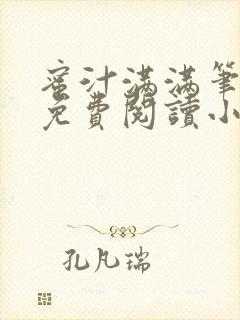 蜜汁满满筆
免費閱讀小
孔凡瑞